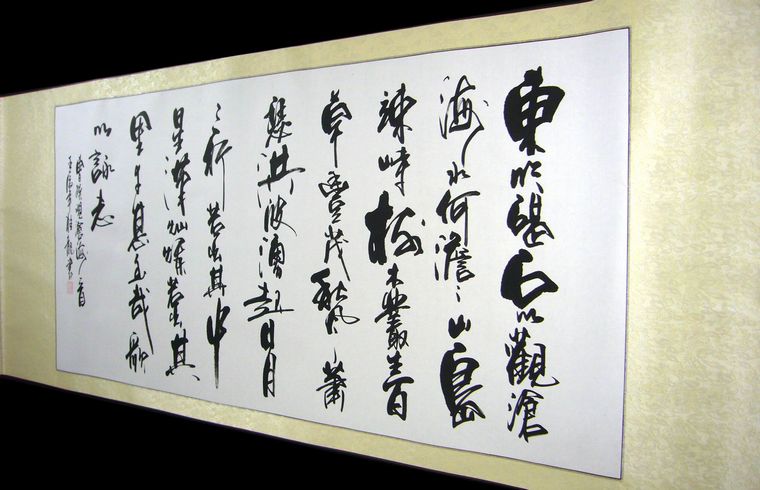 東臨碣石以觀滄
海水何澹〻山島
竦峙樹木叢生百
草豐茂秋風蕭
瑟洪波湧起日月
之行若出其中
星漢灿爛若出其
里幸甚至哉歌
以詠志
曹操觀滄海一首
書